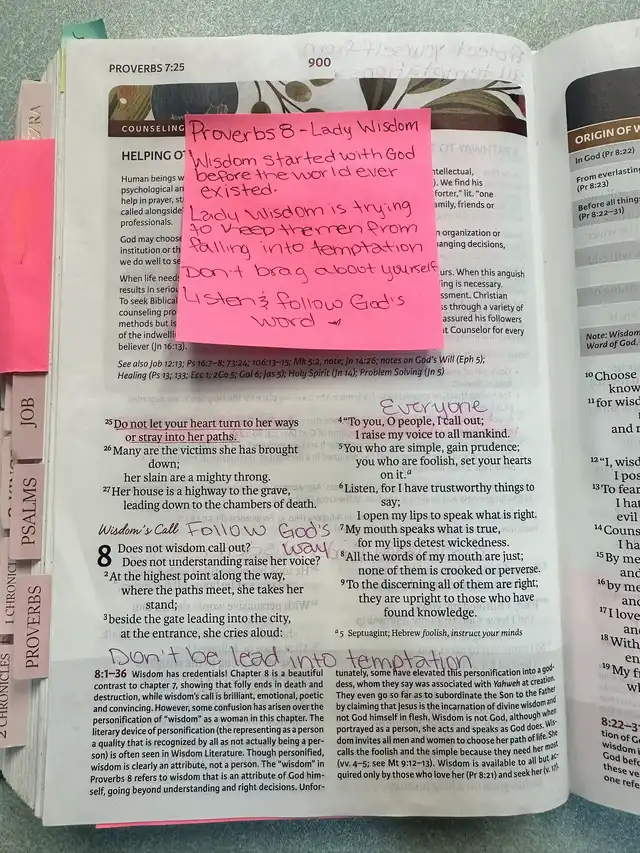 PROVERBS 7:25
900
COUNSELING
HELPING
Proverbs 8 - Lady Wisdom
Wisdom started with God
before the world ever
existed.
Lady Wisdom is trying
to keep the men from
falling into temptation
Don't brag about yourself
Listen & follow God's
word
Human beings
psychological an
help in prayer, st
called alongside
professionals.
God may choose
institution or th
we do well to se
When life need
results in serio
To seek Biblical
counseling pro
methods but is
of the indwelli
believer (Jn 16:13).
ntellectual,
). We find his
forter," lit. "one
amily, friends or
n organization or
anging decisions,
urs. When this anguish
ing is necessary.
ssment. Christian
s through a variety of
assured his followers
t Counselor for every
See also Job 12:13; Ps 16:7–8; 73:24; 106:13–15; Mk 5:2, note; Jn 14:26; notes on God's Will (Eph 5);
Healing (Ps 13; 133; Ecc 1; 2Co 5; Gal 6; Jas 5); Holy Spirit (Jn 14); Problem Solving (Jn 5)
25 Do not let your heart turn to her ways
or stray into her paths.
26 Many are the victims she has brought
down;
her slain are a mighty throng.
27 Her house is a highway to the grave,
leading down to the chambers of death.
Wisdom's Call Follow God's
way
8 Does not wisdom call out?
Does not understanding raise her voice?
2 At the highest point along the way,
where the paths meet, she takes her
stand;
3 beside the gate leading into the city,
at the entrance, she cries aloud:
Everyone
4 "To you, O people, I call out;
I raise my voice to all mankind.
5 You who are simple, gain prudence;
you who are foolish, set your hearts
on it.a
6 Listen, for I have trustworthy things to
say;
I open my lips to speak what is right.
7 My mouth speaks what is true,
for my lips detest wickedness.
8 All the words of my mouth are just;
none of them is crooked or perverse.
9 To the discerning all of them are right;
they are upright to those who have
found knowledge.
a 5 Septuagint; Hebrew foolish, instruct your minds
Don't be lead into temptation
8:1–36 Wisdom has credentials! Chapter 8 is a beautiful
contrast to chapter 7, showing that folly ends in death and
destruction, while wisdom's call is brilliant, emotional, poetic
and convincing. However, some confusion has arisen over the
personification of "wisdom" as a woman in this chapter. The
literary device of personification (the representing as a person
a quality that is recognized by all as not actually being a per-
son) is often seen in Wisdom Literature. Though personified,
wisdom is clearly an attribute, not a person. The "wisdom" in
Proverbs 8 refers to wisdom that is an attribute of God him-
self, going beyond understanding and right decisions. Unfor-
tunately, some have elevated this personification into a god-
dess, whom they say was associated with Yahweh at creation.
They even go so far as to subordinate the Son to the Father
by claiming that Jesus is the incarnation of divine wisdom and
not God himself in flesh. Wisdom is not God, although when
portrayed as a person, she acts and speaks as God does. Wis-
dom invites all men and women to choose her path of life. She
calls the foolish and the simple because they need her most
(vv. 4–5; see Mt 9:12–13). Wisdom is available to all but ac-
quired only by those who love her (Pr 8:21) and seek her (v. 17).
EZRA
JOB
PSALMS
1 CHRONIC
PROVERBS
2 CHRONICLES
ORIGIN OF W
In God (Pr 8:22)
From everlasting
(Pr 8:23)
Before all things
(Pr 8:22–31)
Note: Wisdom
Word of God.
10 Choose
know
11 for wisd
and n
12 "I, wisd
I pos
13 To fear
I hat
evil
14 Couns
I ha
15 By me
and
16 by me
and
17 I love
and
18 With
en
19 My f
w
8:22–31
tion of G
wisdom
God befo
these ve
one refe